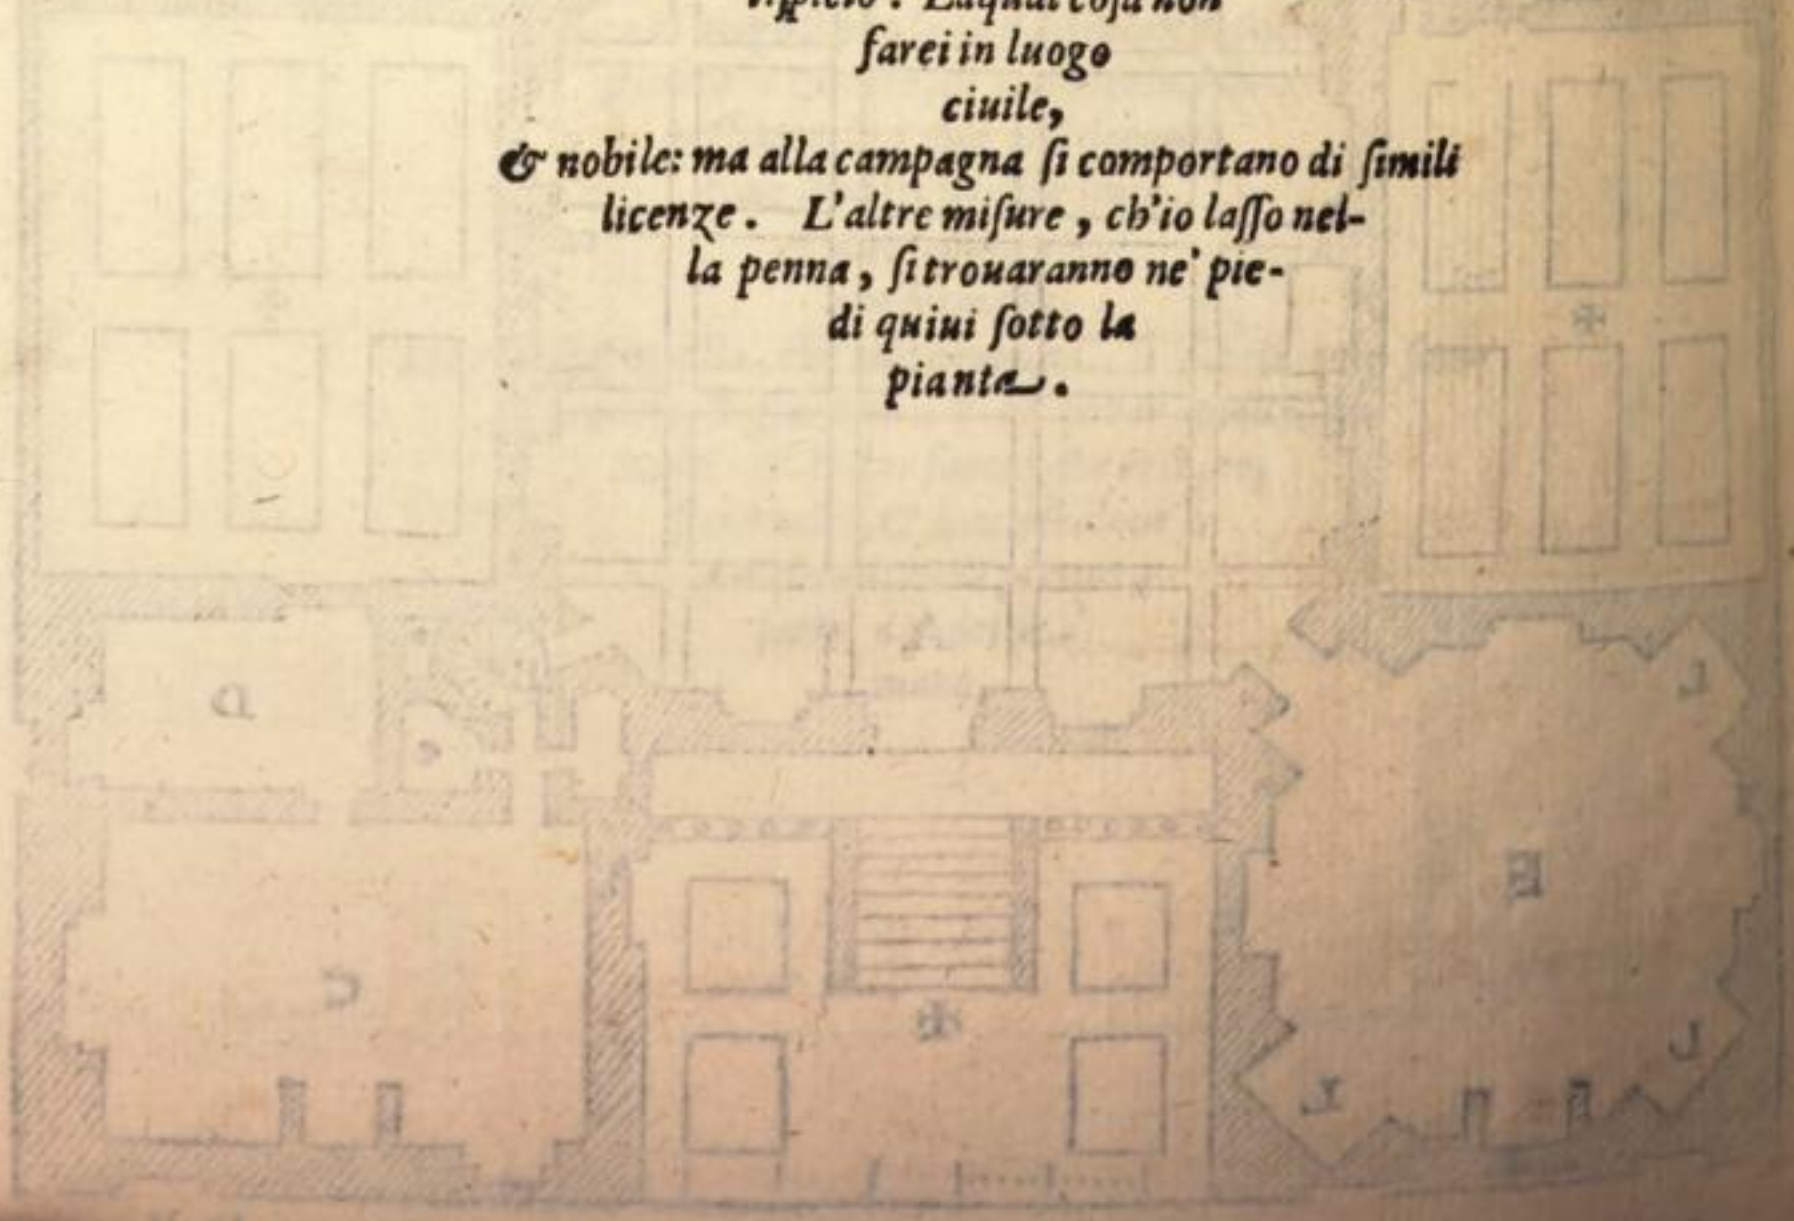 Laqual cosa non
farei in luogo
ciuile,
& nobile: ma alla campagna ſi comportano di ſimili
licenze. L'altre miſure, ch'io laſſo nel-
la penna, ſi trouaranno ne' pie-
di quiui ſotto la
pianta.
D
E
C
L
L
L